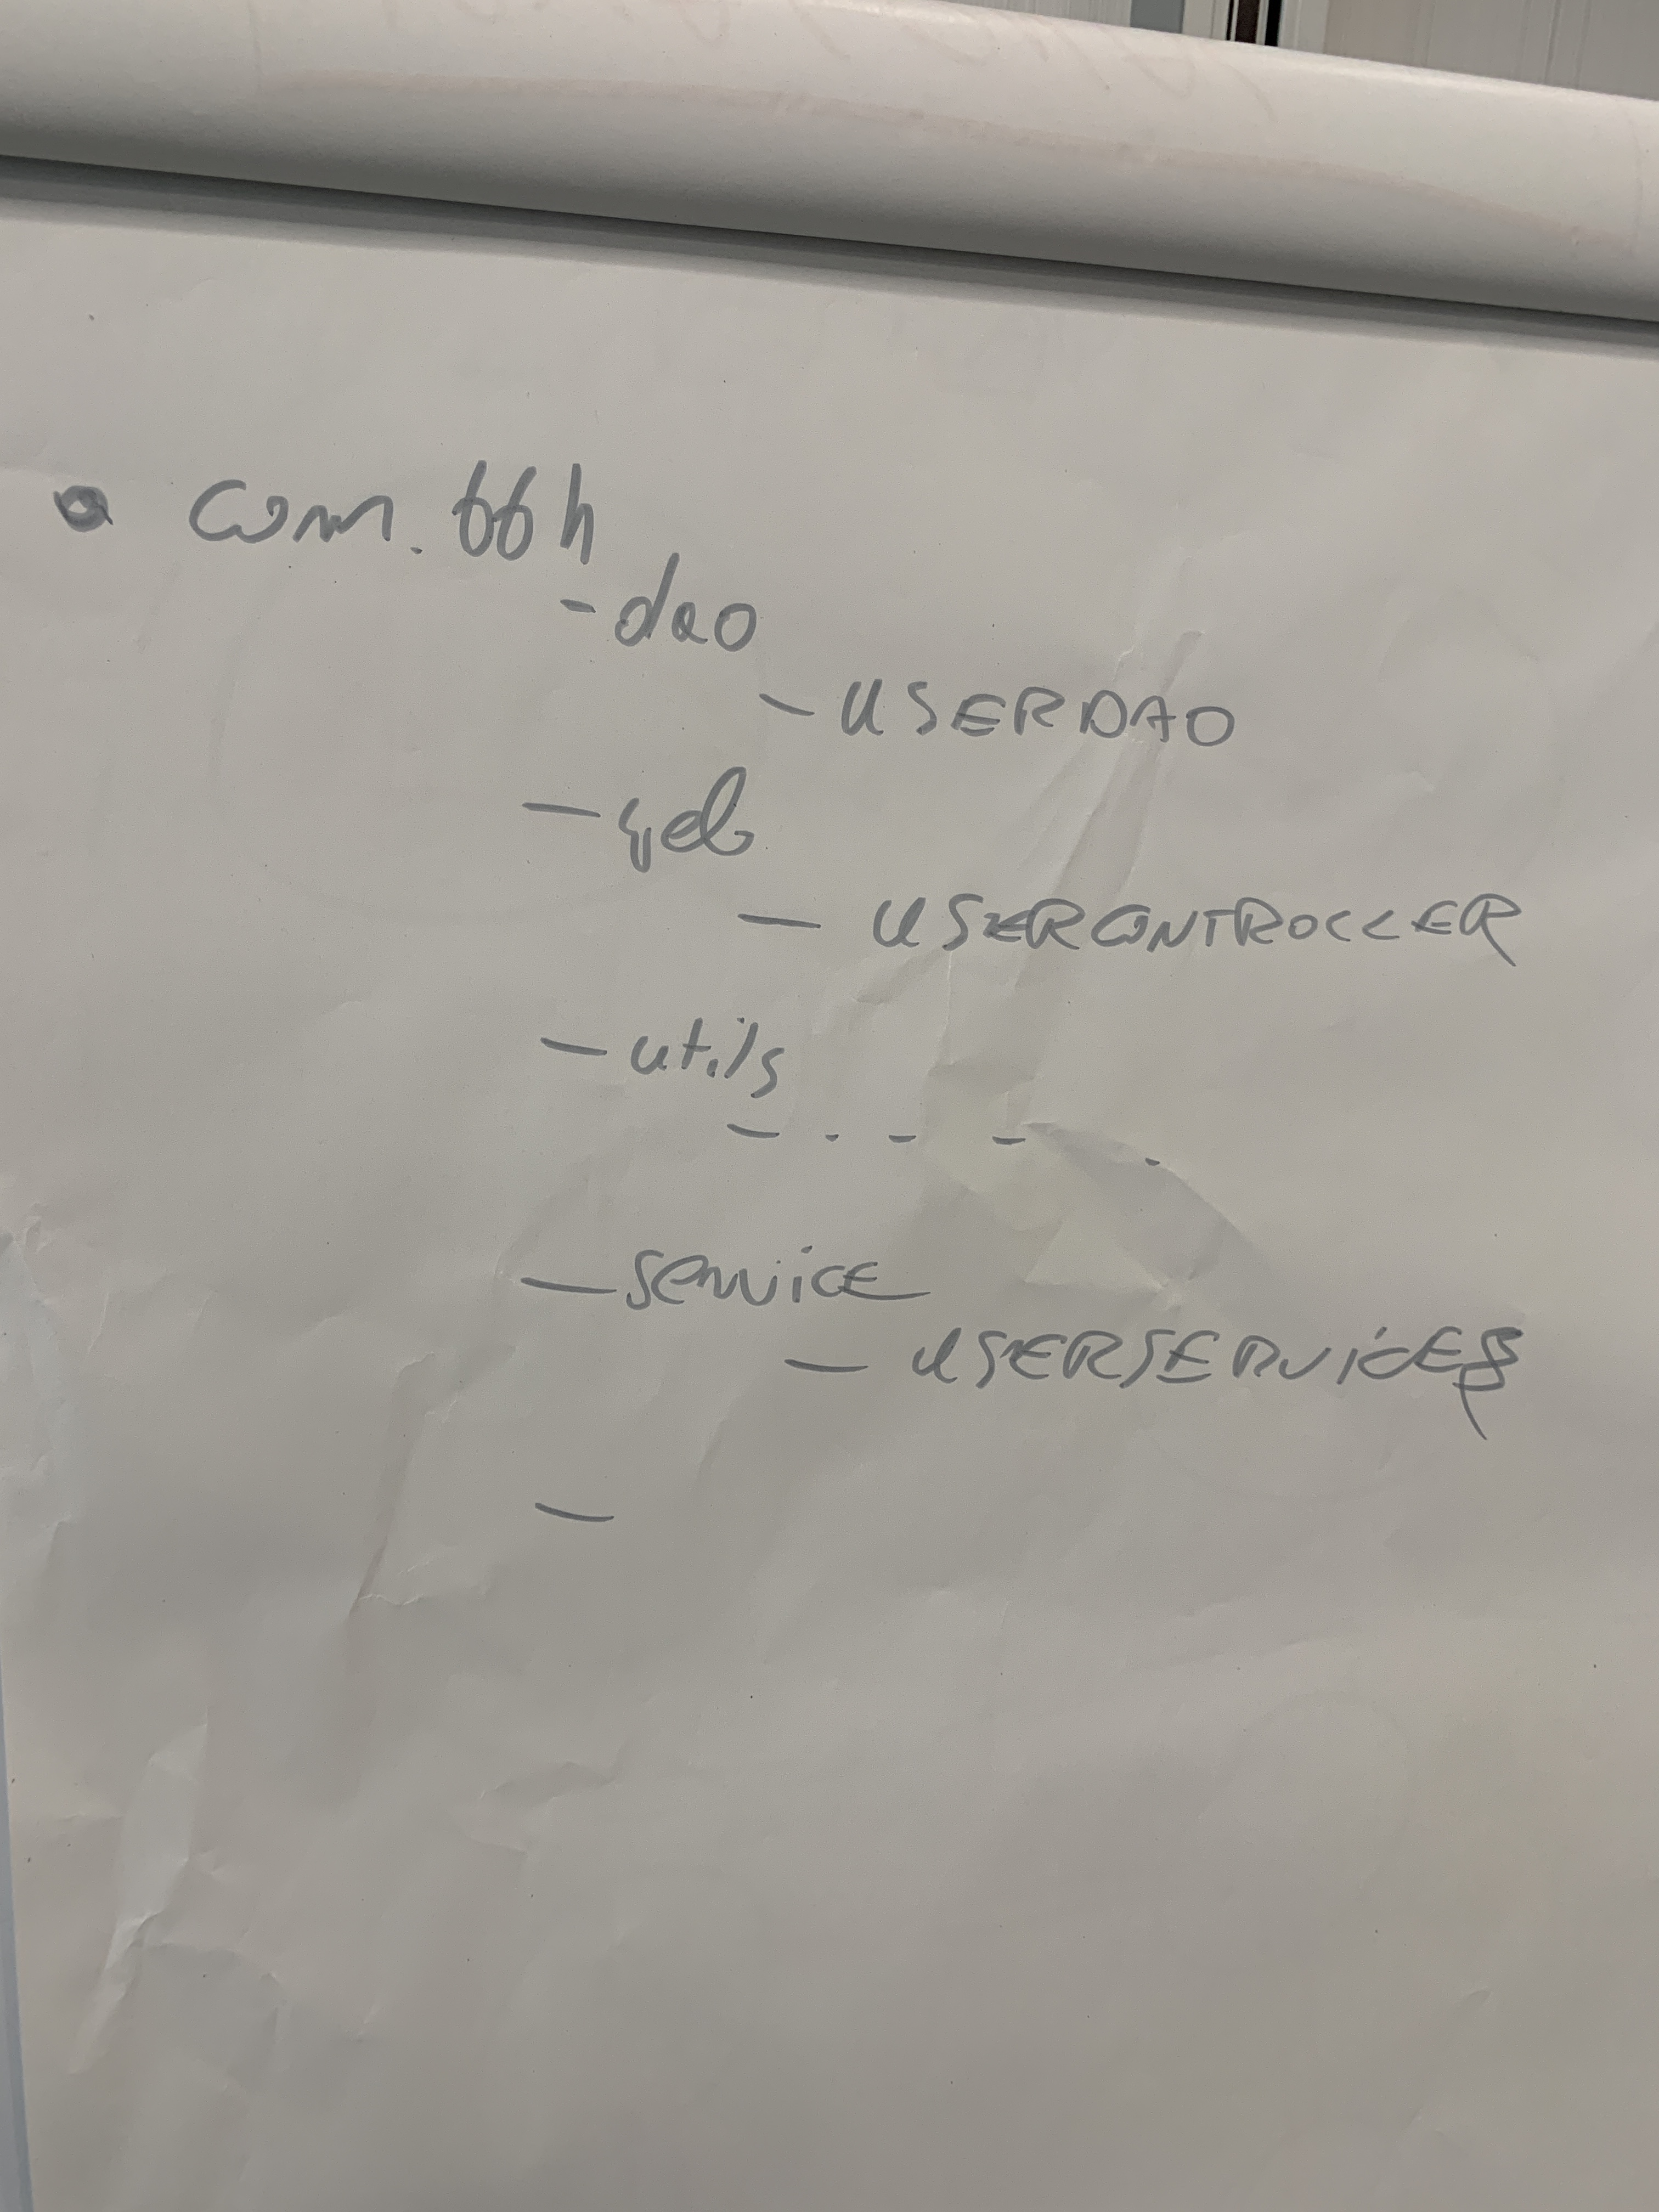 com.bbh
- dao
- USERDAO
- web
- USERCONTROLLER
- utils
- . - - .
- service
- USERSERVICES
-